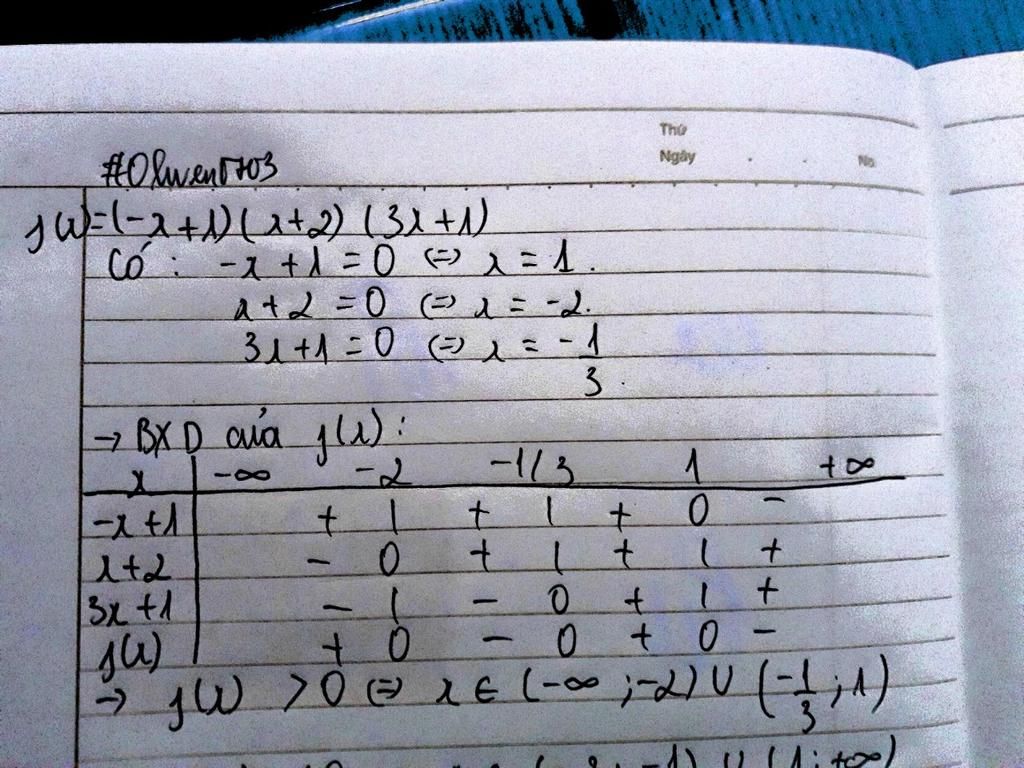 Thứ
Ngày No
#Olwen0703
f(x)=(-x+1)(x+2)(3x+1)
Có: -x+1=0 (=) x=1.
x+2=0 (=) x=-2.
3x+1=0 (=) x=-1/3.
→ BXD của f(x):
x -∞ -2 -1/3 1 +∞
-x+1 + | + | + 0 -
x+2 - 0 + | + | +
3x+1 - | - 0 + | +
f(x) + 0 - 0 + 0 -
→ f(x) >0 (=) x∈(-∞;-2)∪(-1/3;1)
∪(1;+∞)